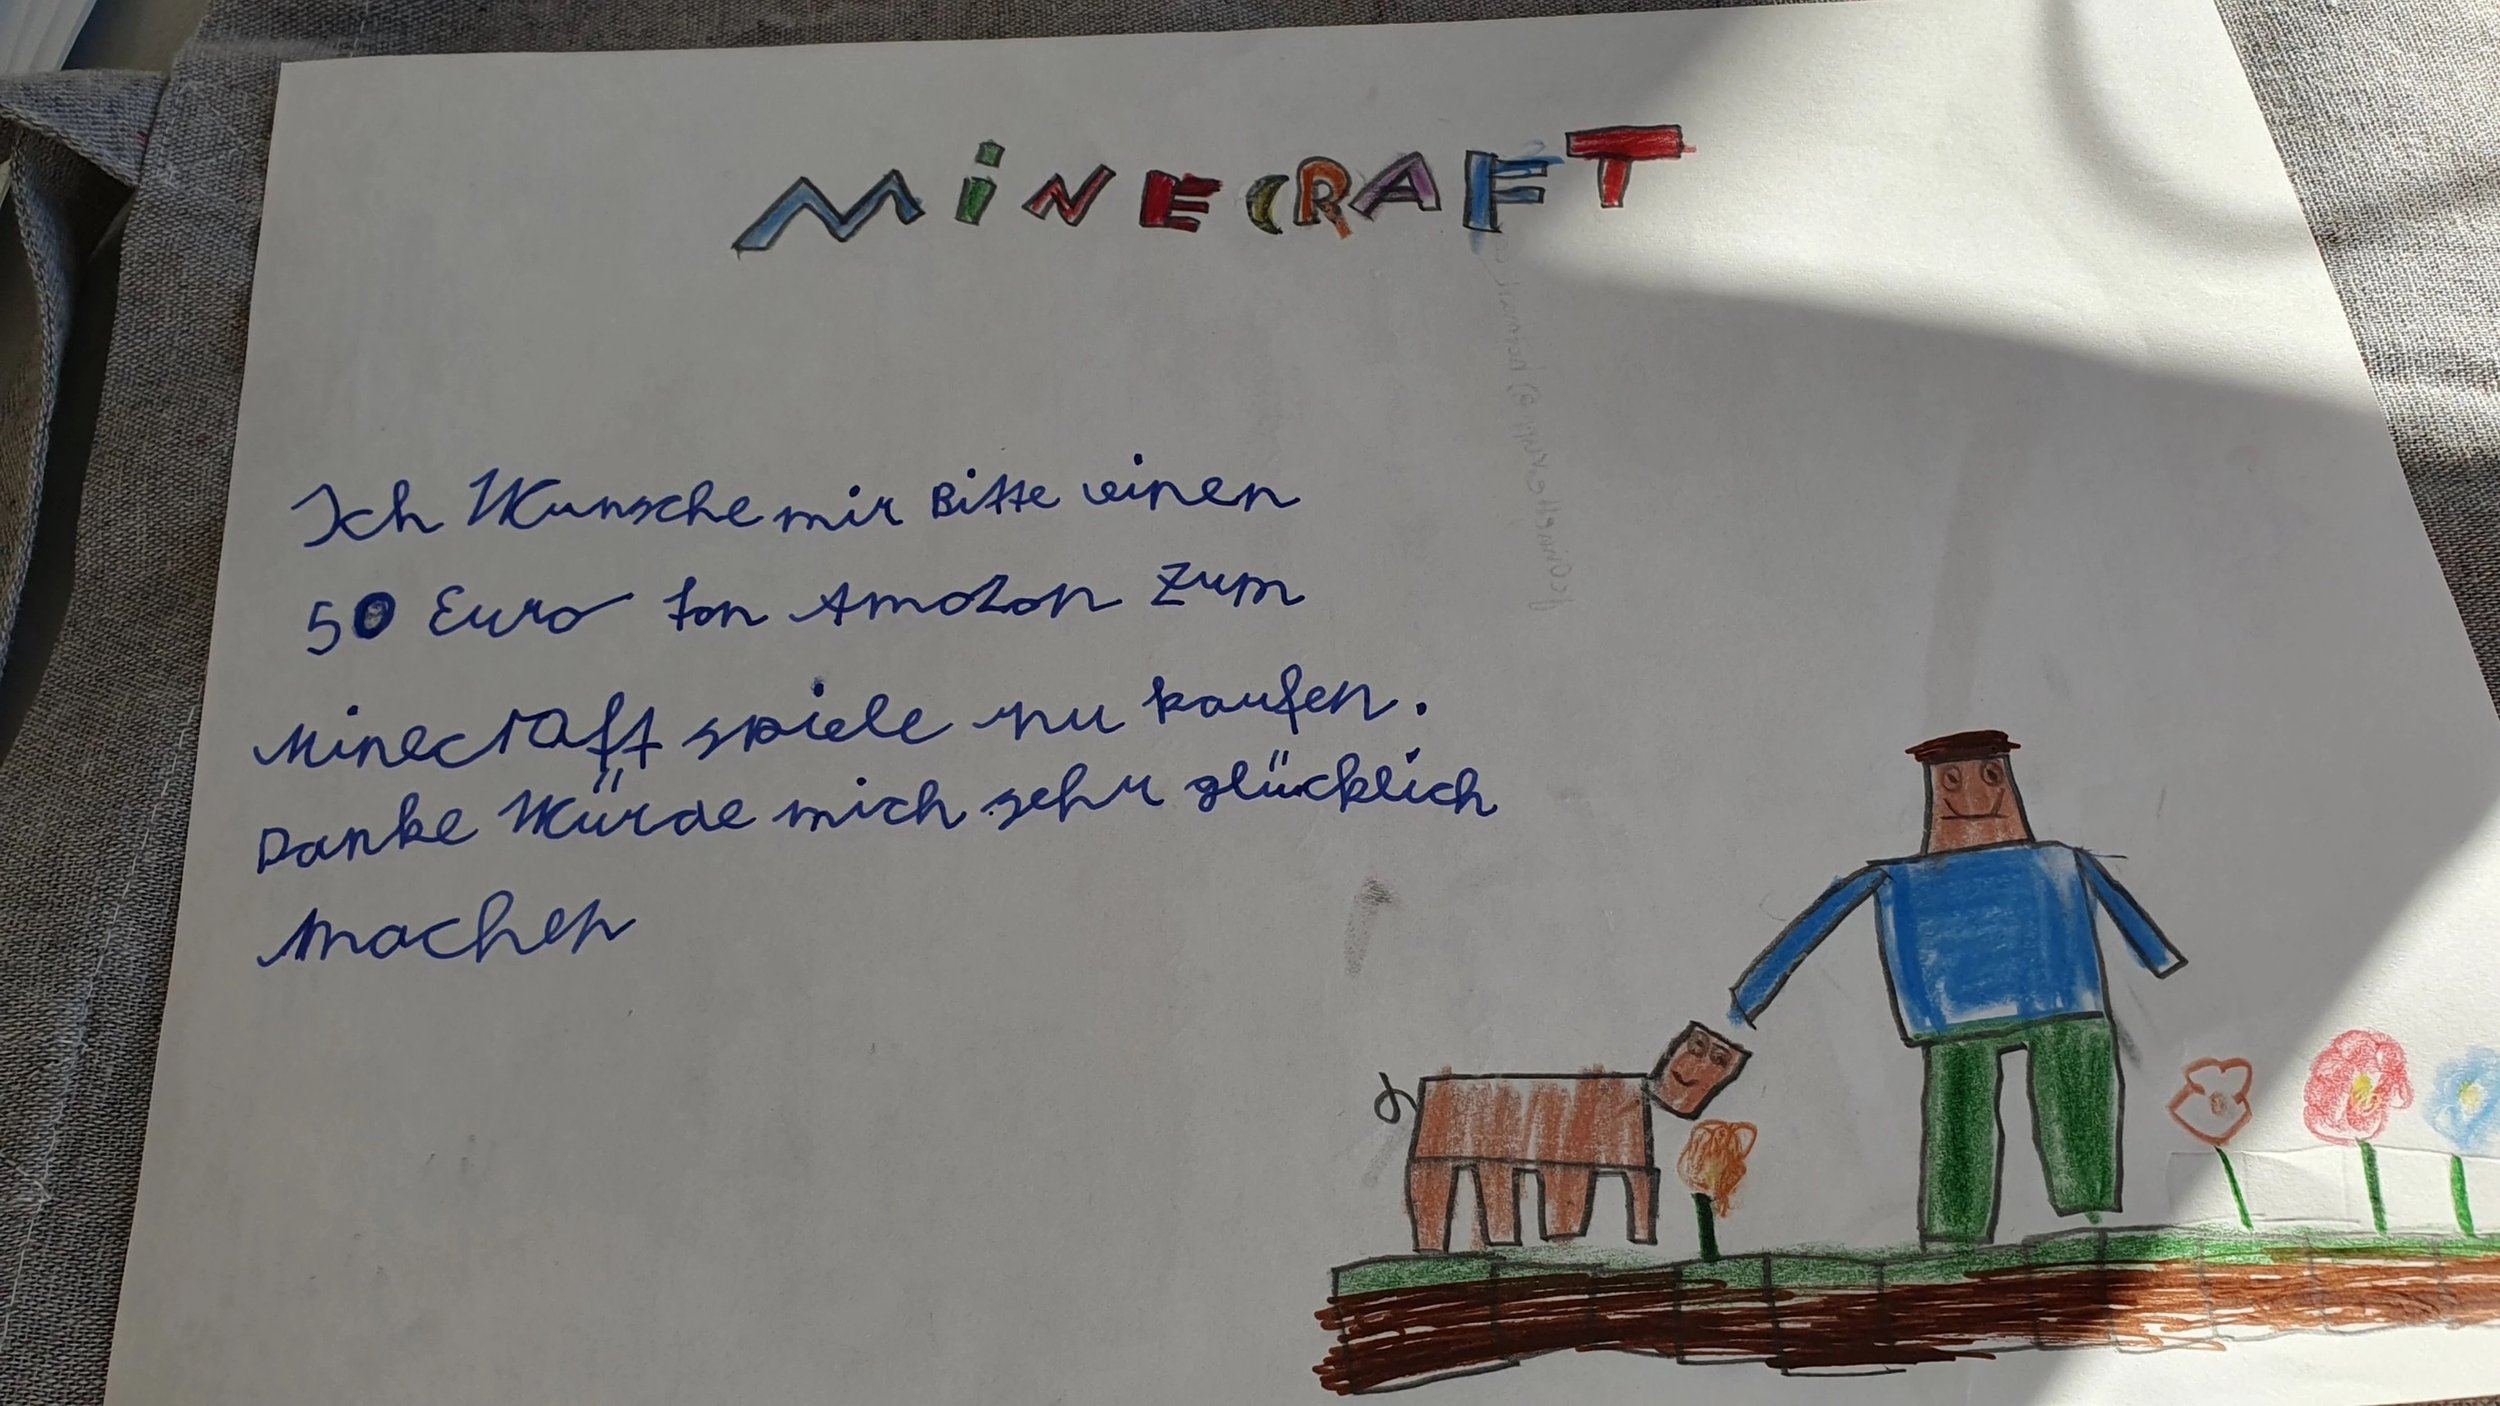 MiNECRAFT
Ich Wunsche mir Bitte einen
50 Euro fon Amazon Zum
Minecraft spiele nu kaufen.
Danke Würde mich sehr glücklich
machen